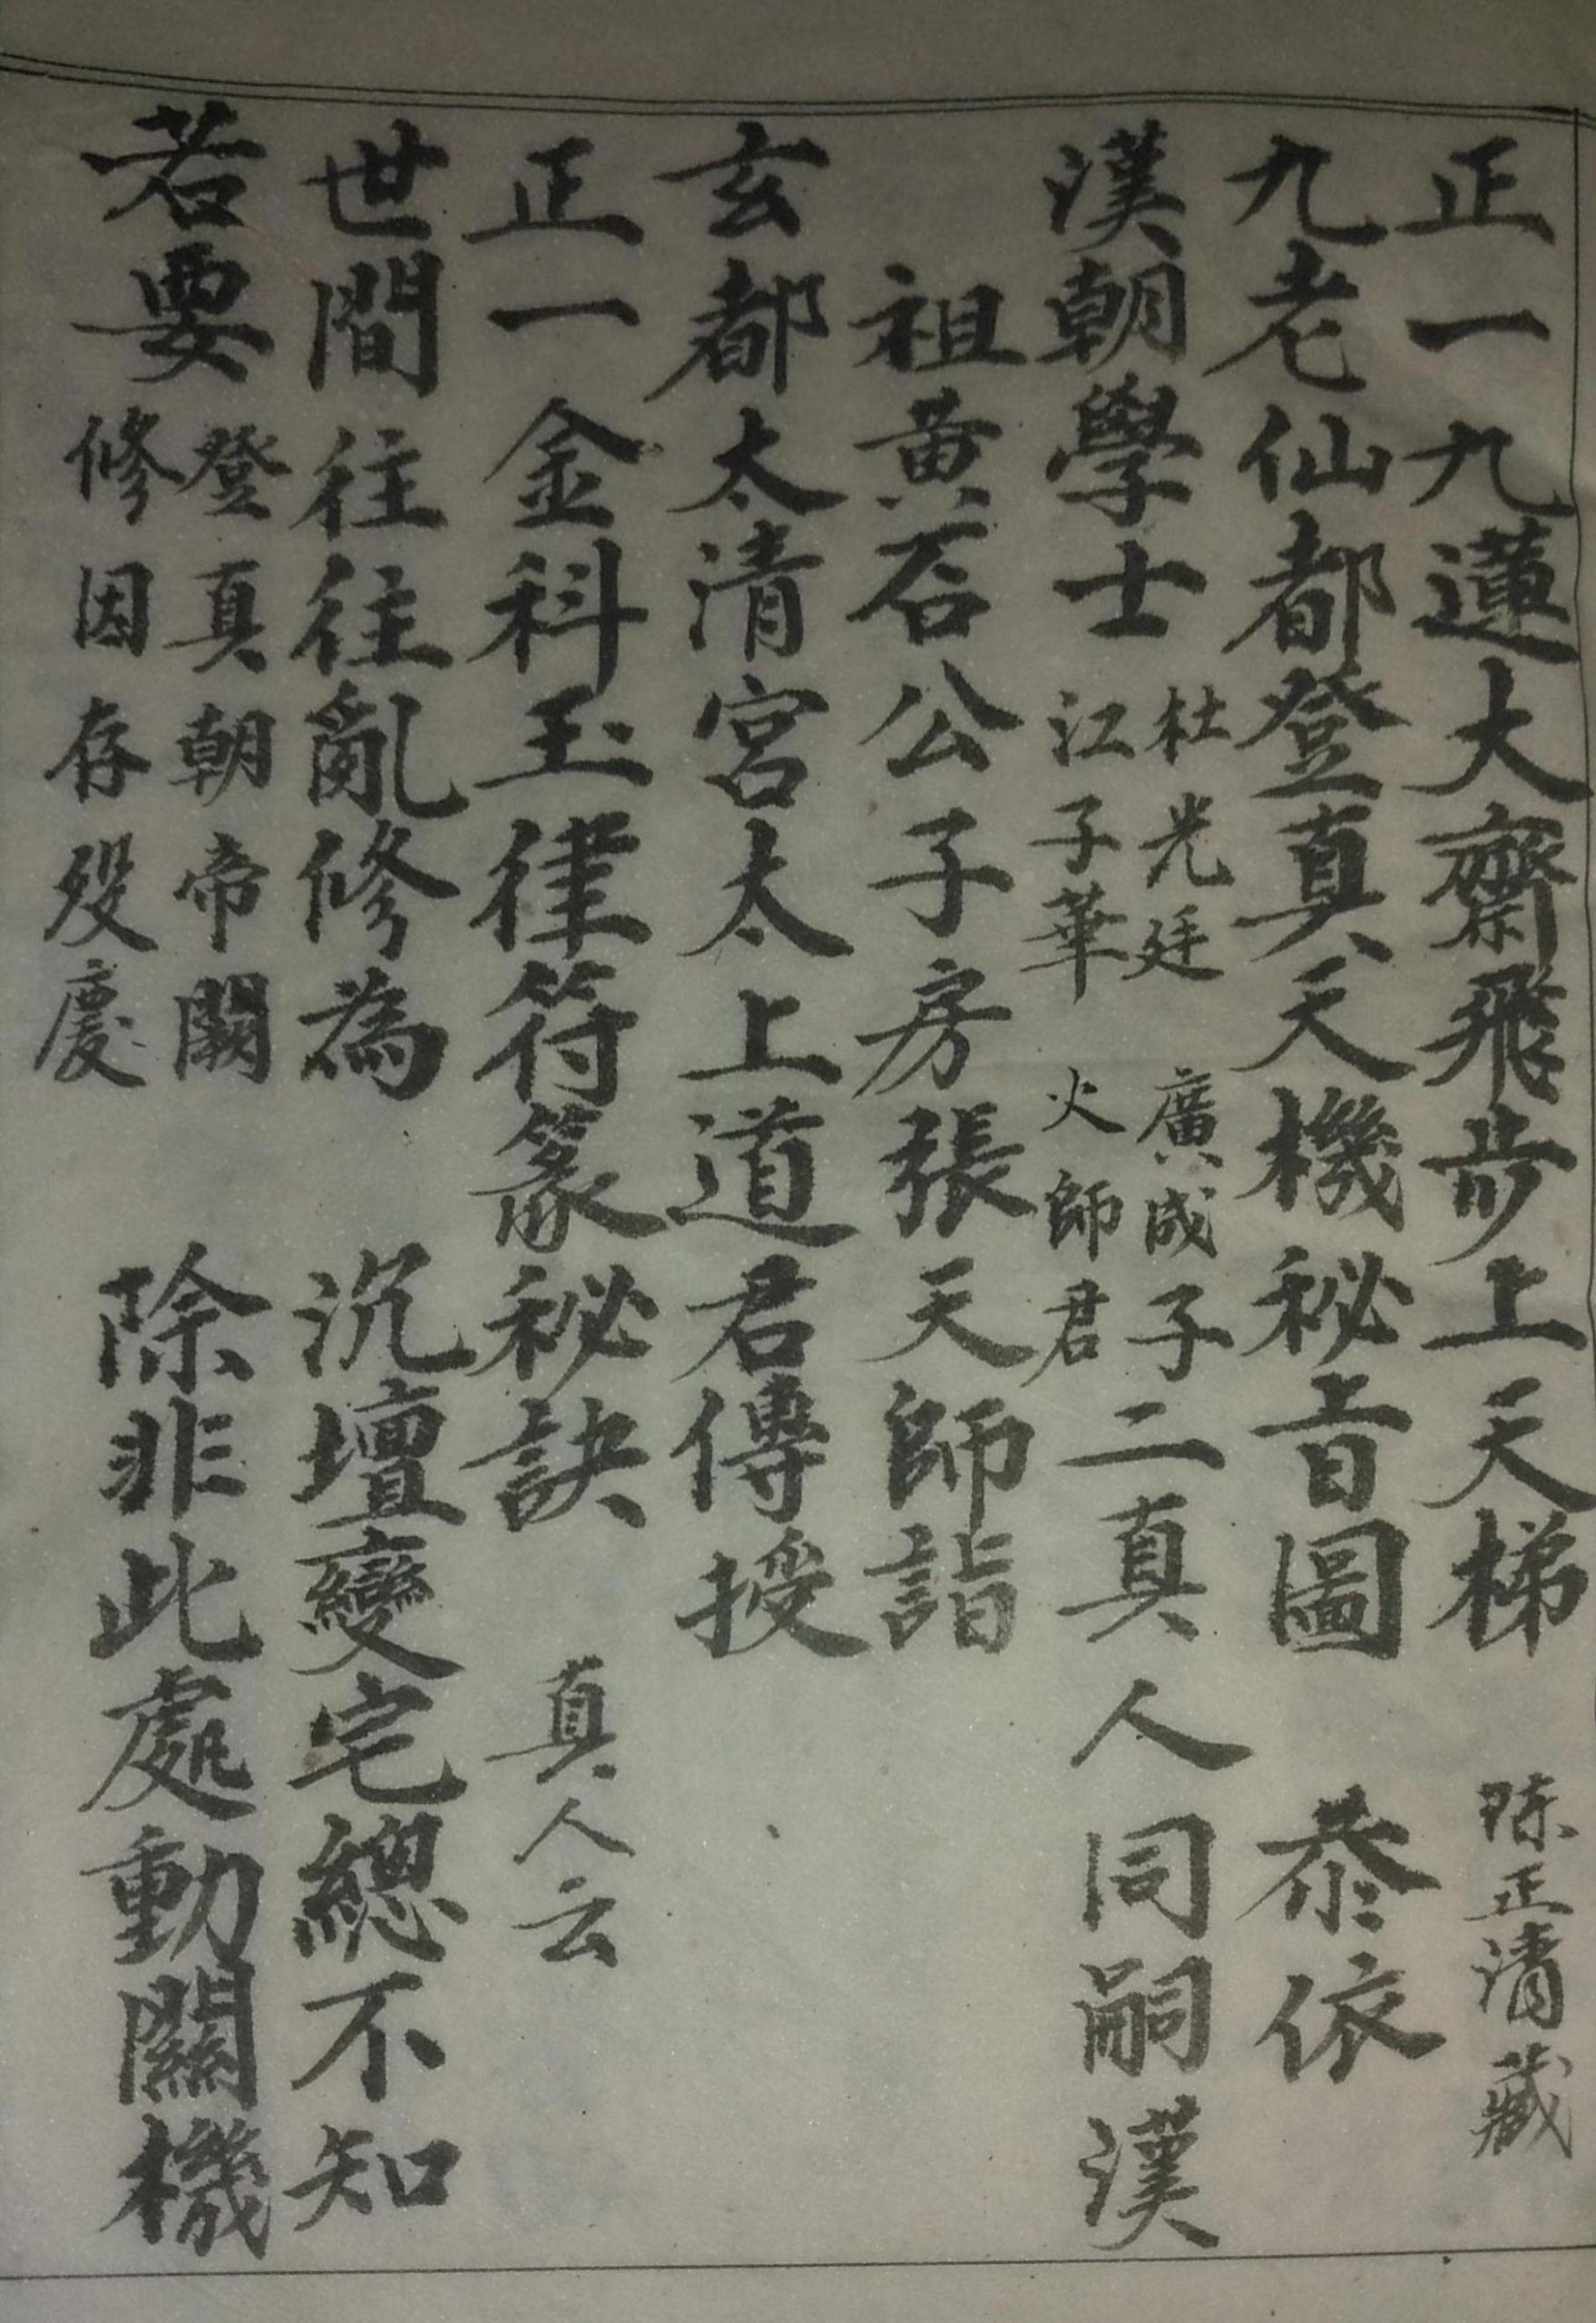 正一九蓮大齋飛步上天梯 陈正清藏
九老仙都登真天機秘旨圖 恭依
漢朝學士 杜光廷 江子華 廣成子 火師君 二真人同嗣漢
祖黃石公子房張天師詣
玄都太清宮太上道君傳授
正一金科玉律符篆秘訣 真人云
世間往往亂修為 沉壇變宅總不知
若要 登真朝帝闕 修因存歿慶 除非此處動關機